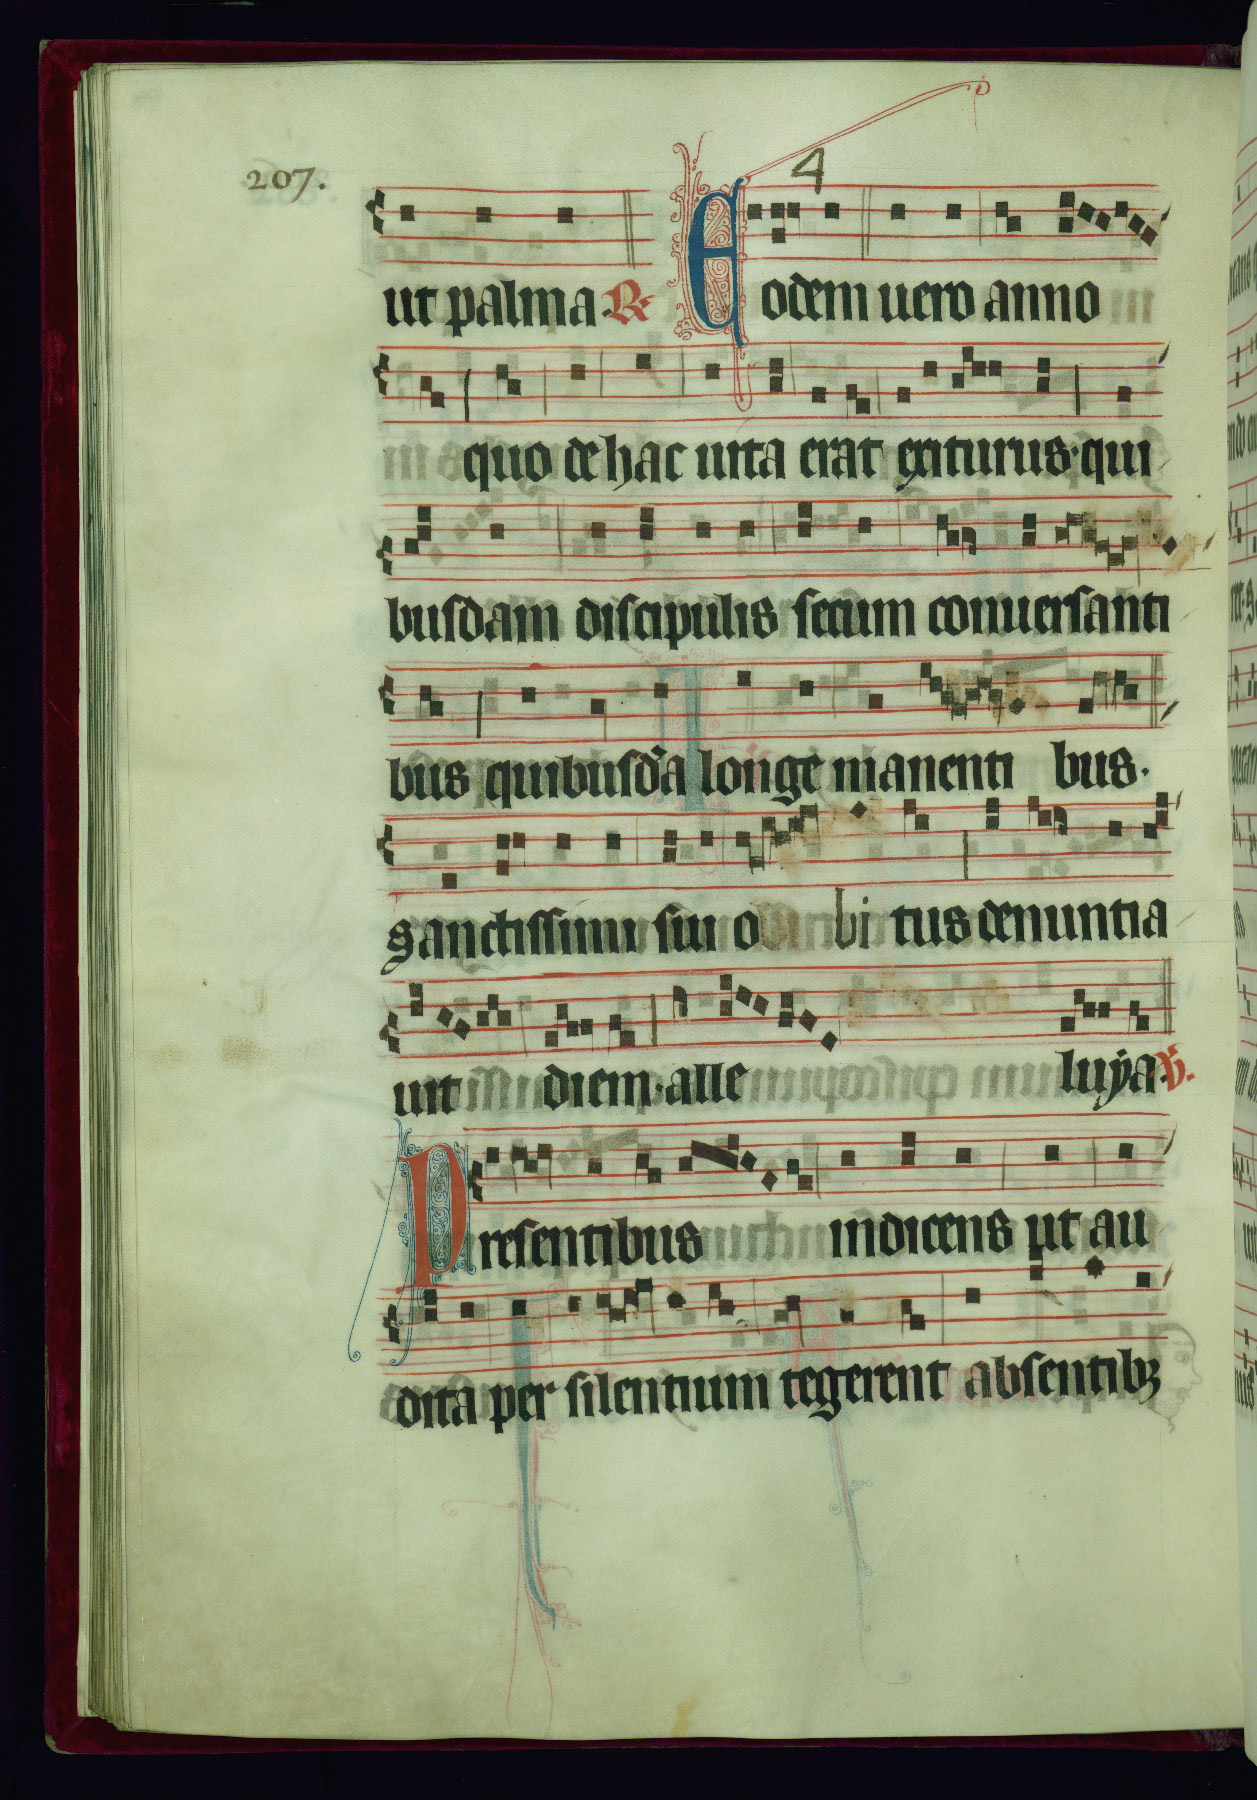 207.
4
ut palma. R. Eodem uero anno
quo de hac uita erat exiturus. qui
busdam discipulis secum conuersanti
bus quibusda longe manenti bus.
sanctissimi sui o bi tus denuntia
uit diem. alle luya. V.
Presentibus indicens ut au
dita per silentium tegerent absentibꝫ